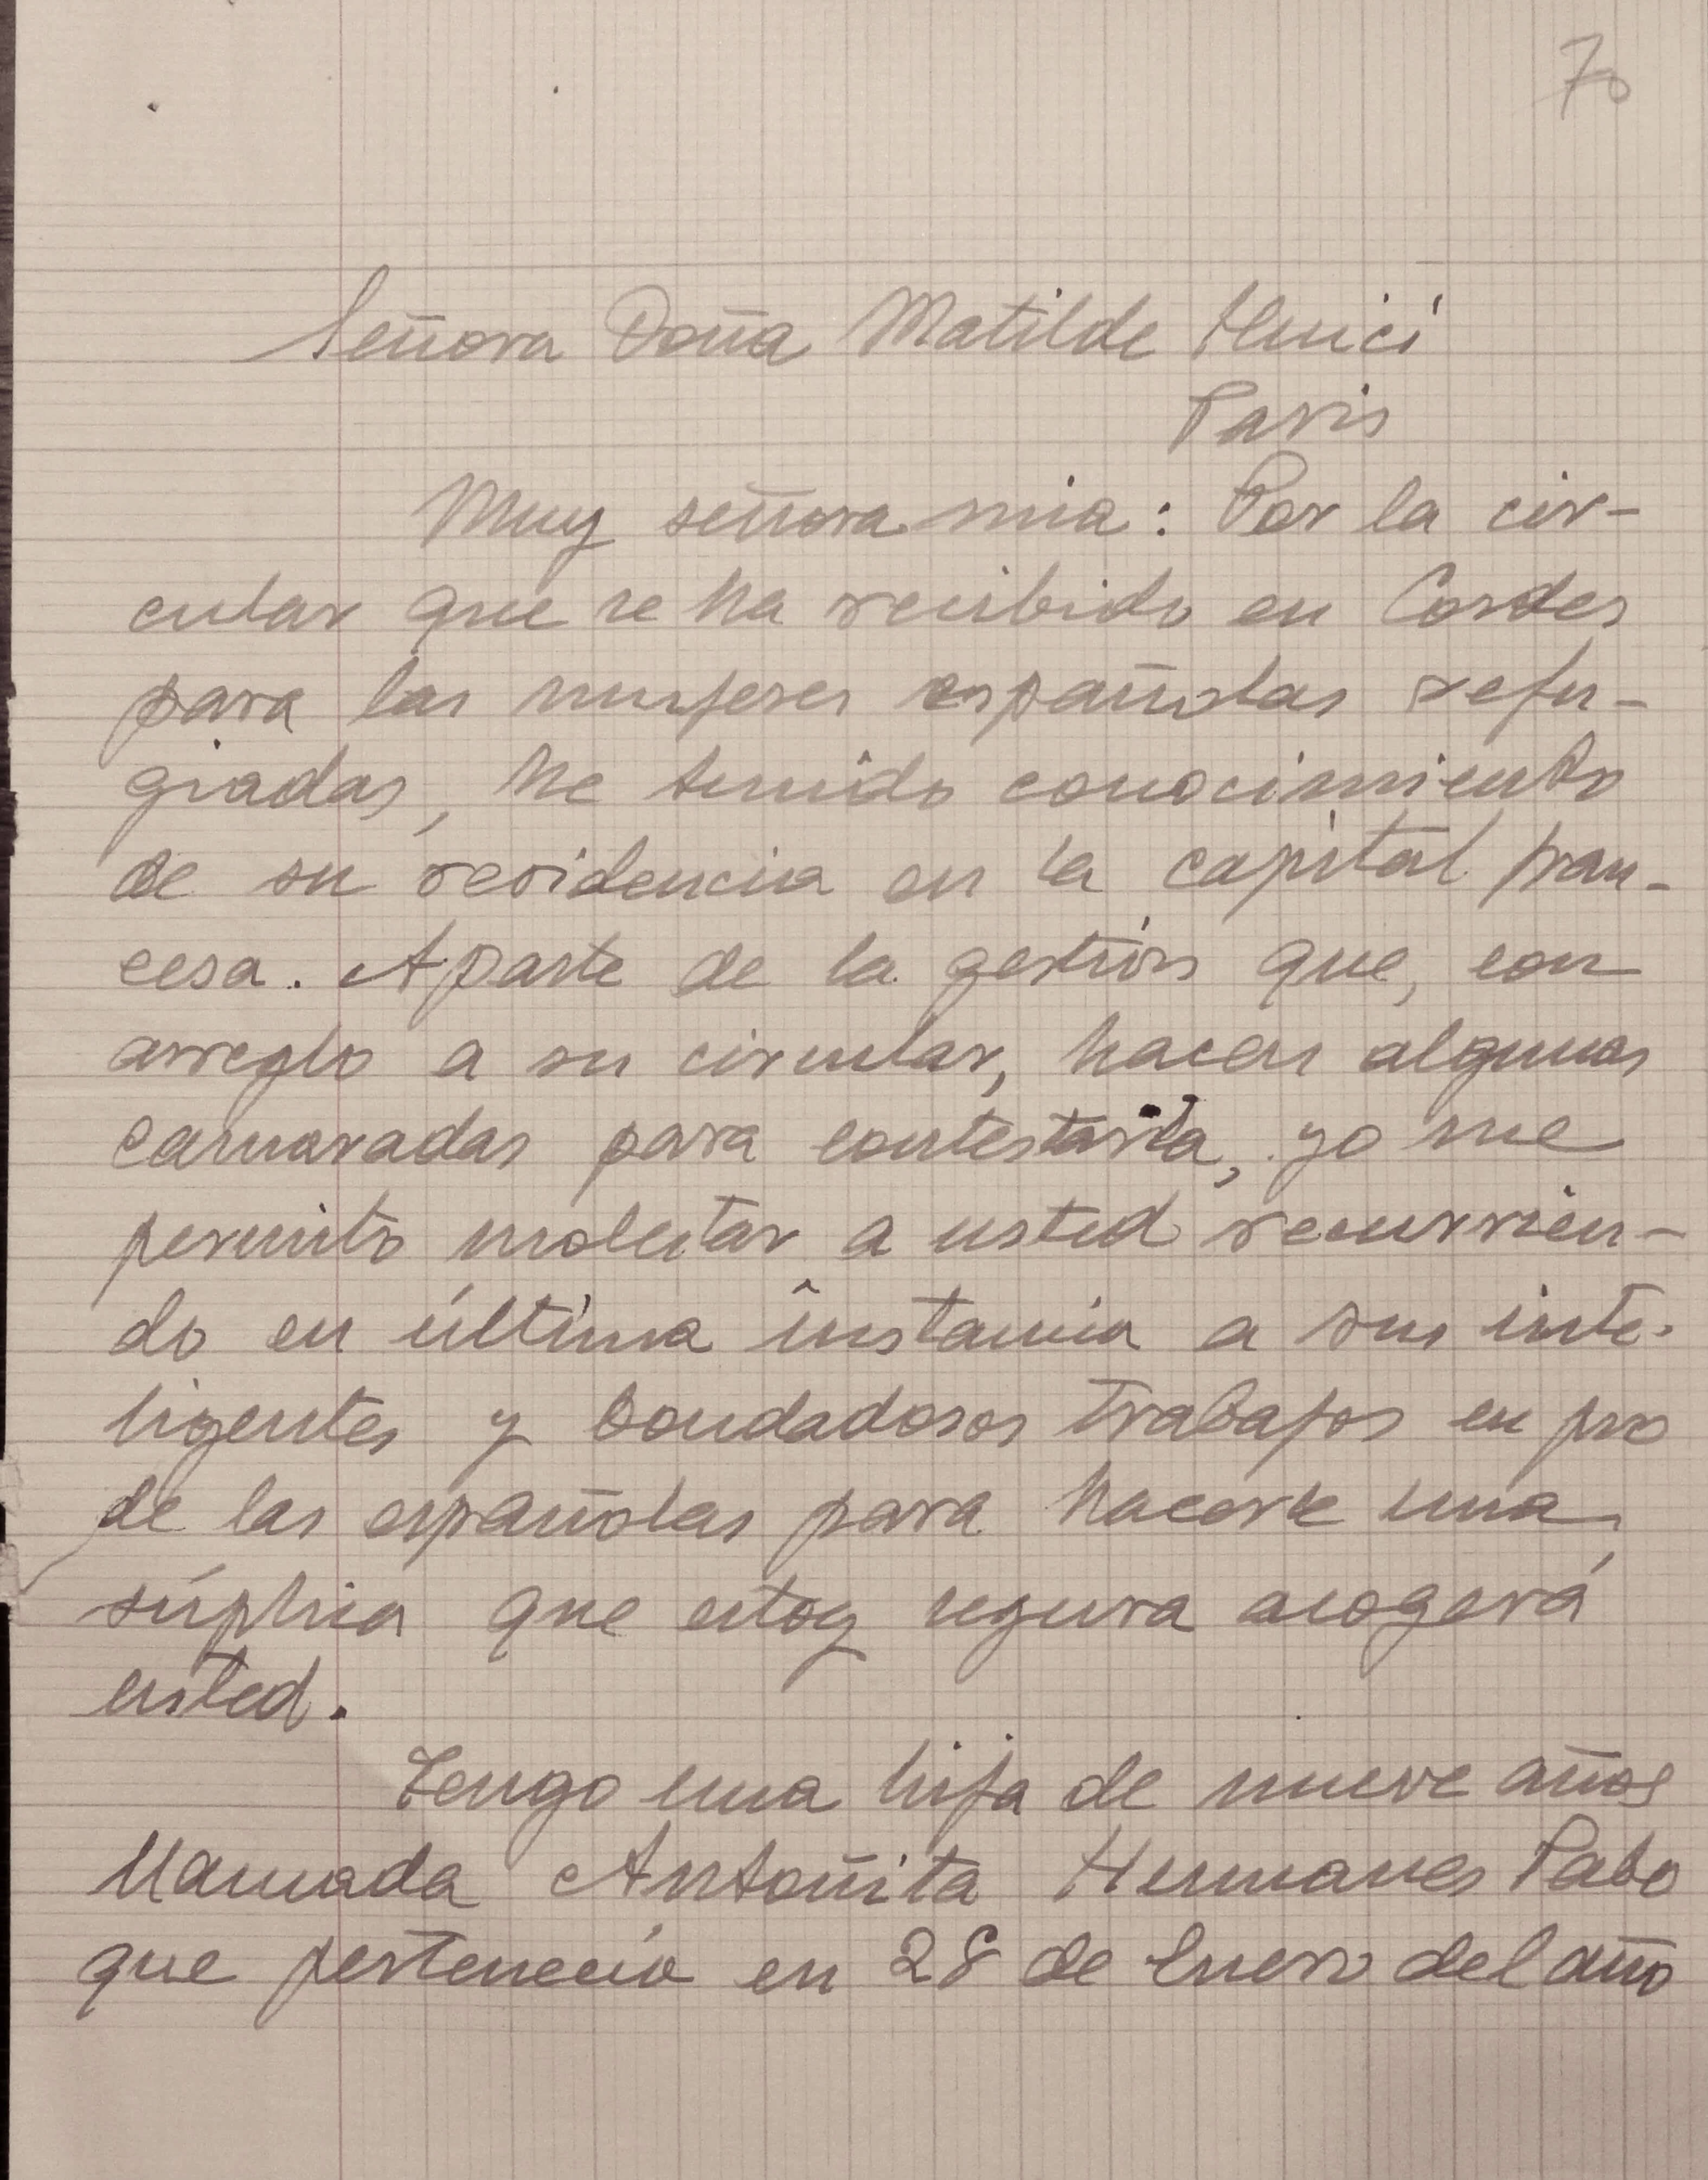 70
Señora Doña Matilde Huici
Paris
Muy señora mia: Por la cir-
cular que se ha recibido en Cordes
para las mujeres españolas refu-
giadas, he tenido conocimiento
de su residencia en la capital fran-
cesa. Aparte de la gestión que, con
arreglo a su circular, hacen algunas
camaradas para contestarla, yo me
permito molestar a usted recurrien-
do en última instancia a sus inte-
ligentes y bondadosos trabajos en pro
de las españolas para hacerle una
súplica que estoy segura acogerá
usted.
Tengo una hija de nueve años
llamada Antoñita Hermanes Pabo
que perteneció en 28 de Enero del año